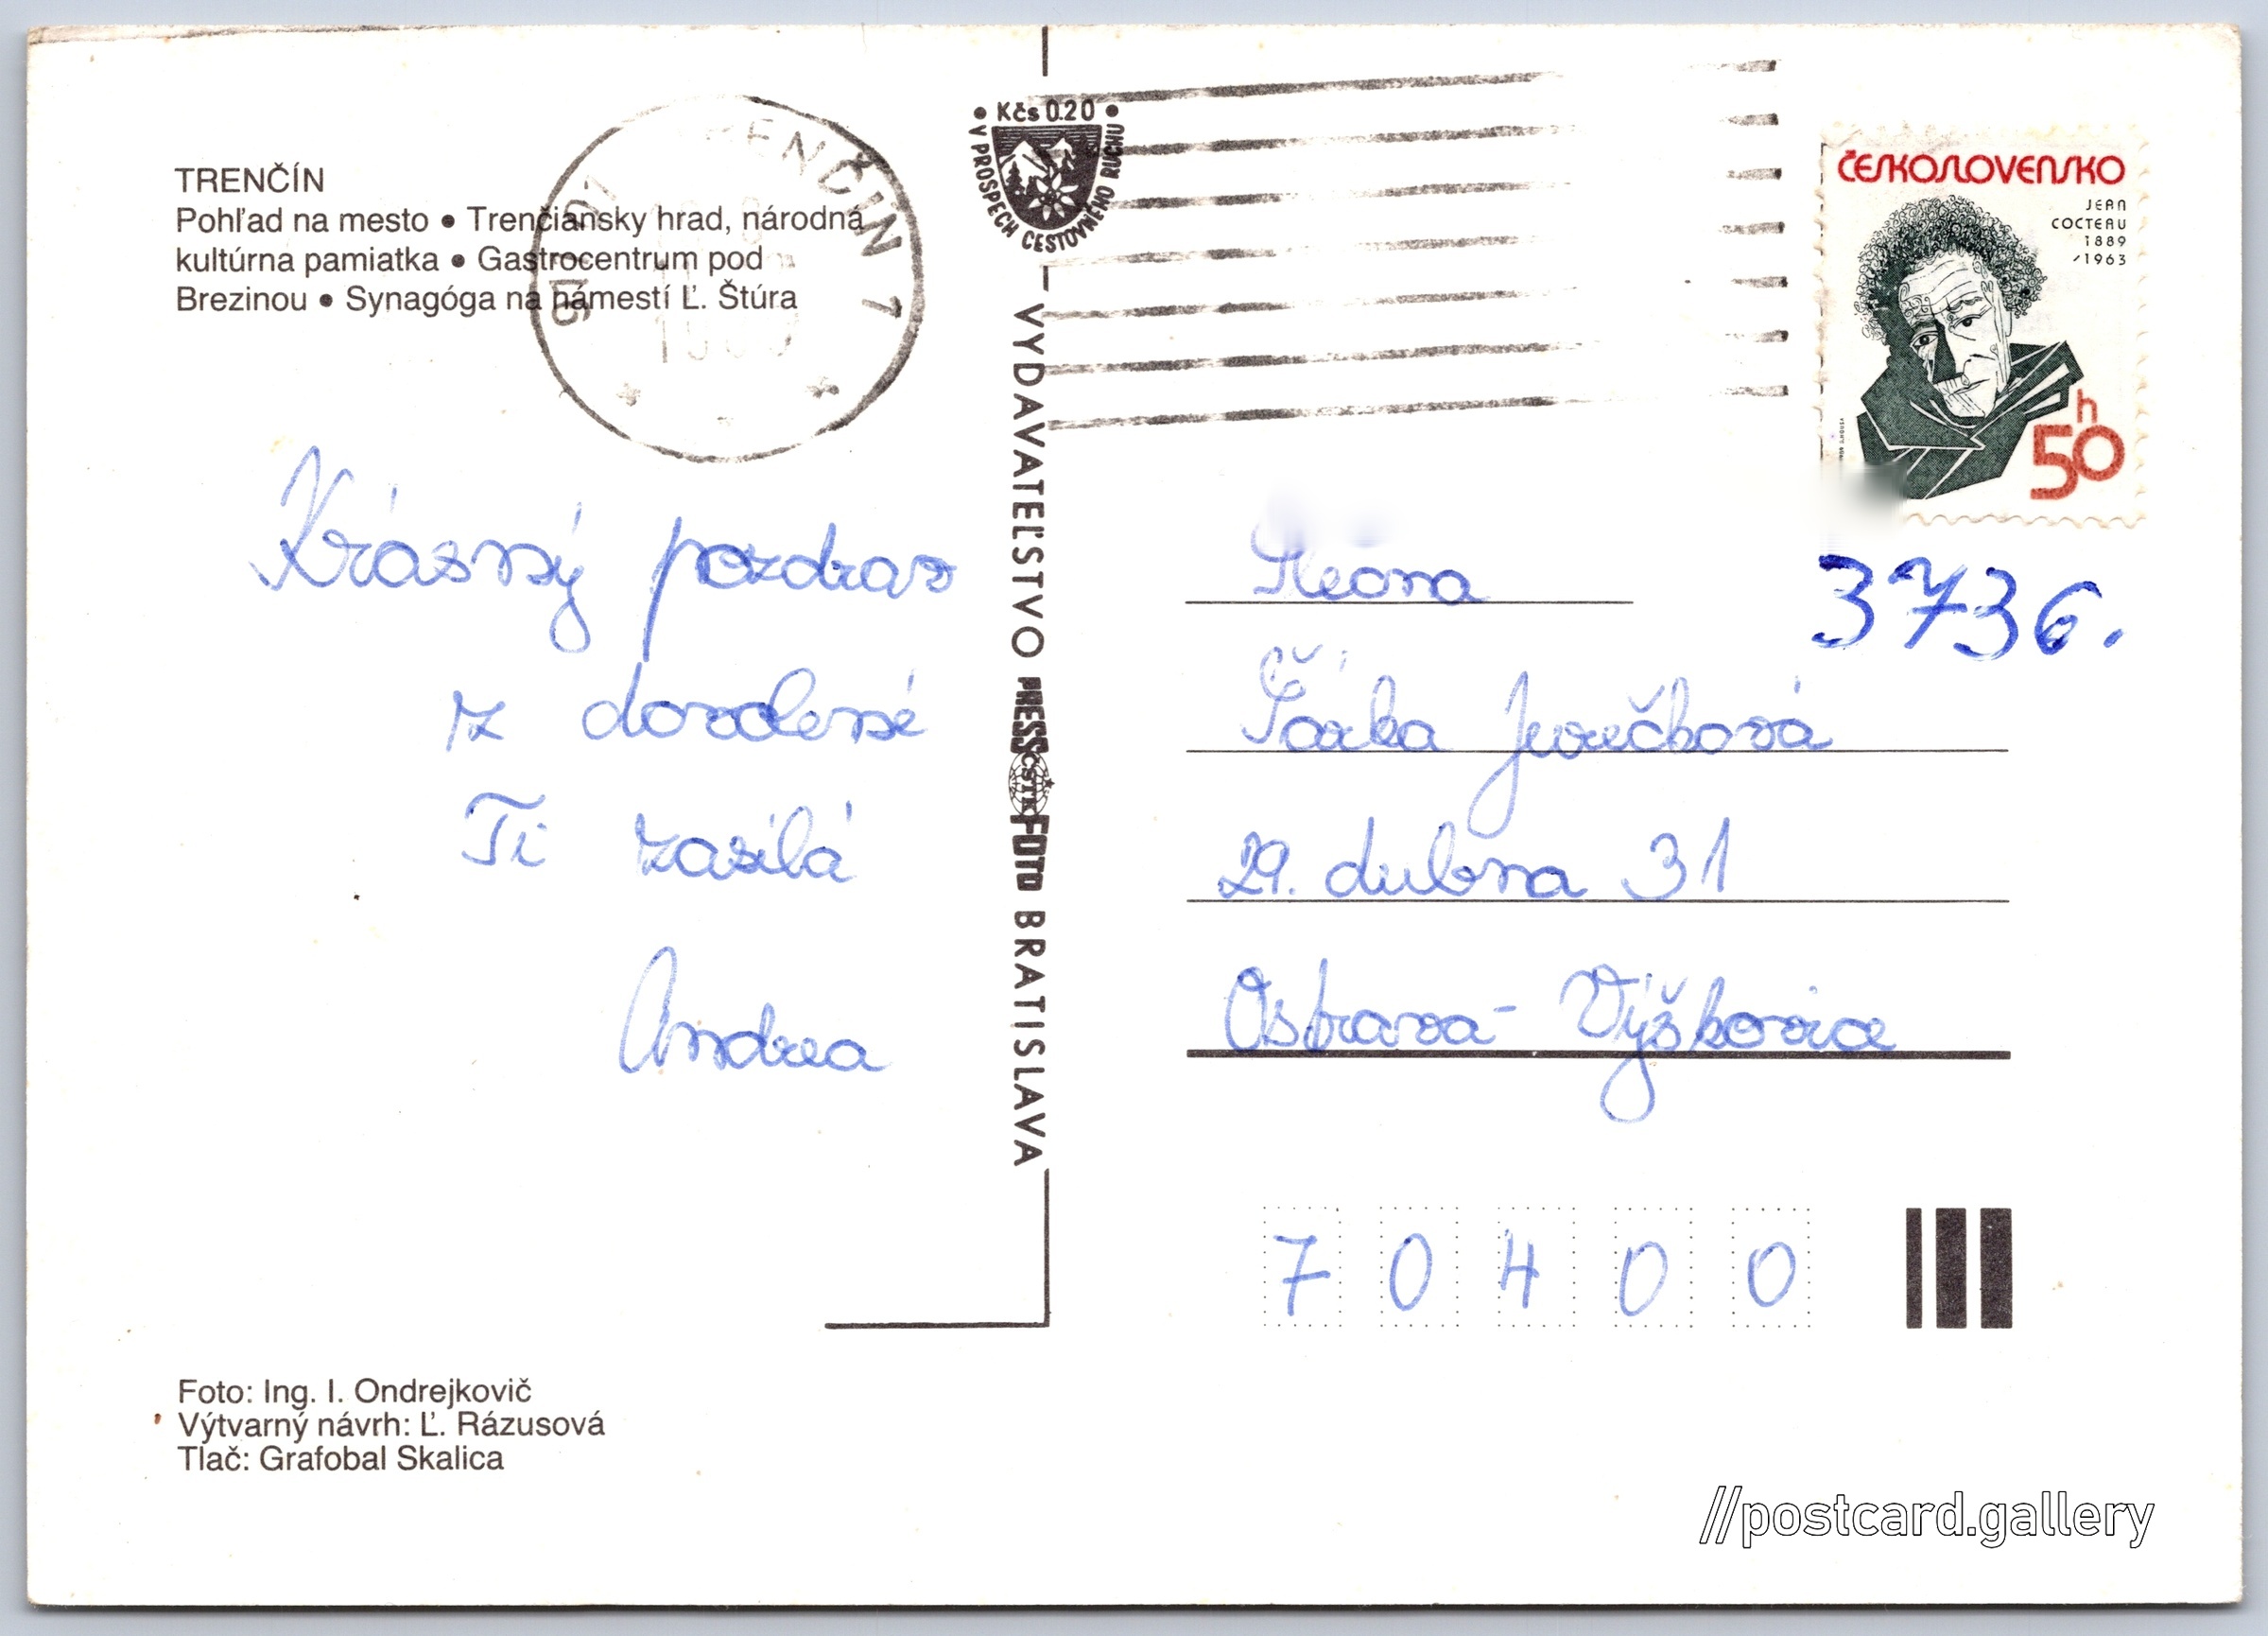 TRENČÍN
Pohľad na mesto ● Trenčiansky hrad, národná
kultúrna pamiatka ● Gastrocentrum pod
Brezinou ● Synagóga na námestí Ľ. Štúra
Krásný pozdrav
z dovolené
Ti zasílá
Andrea
Foto: Ing. I. Ondrejkovič
Výtvarný návrh: Ľ. Rázusová
Tlač: Grafobal Skalica
TRENČÍN 1
● Kčs 0.20 ●
V PROSPECH CESTOVNÉHO RUCHU
VYDAVATEĽSTVO PRESSFOTO BRATISLAVA
ČSTK
ČESKOSLOVENSKO
JEAN
COCTEAU
1889
/1963
h
50
3736.
Šárka
29. dubna 31
Ostrava - Výškovice
70400
//postcard.gallery